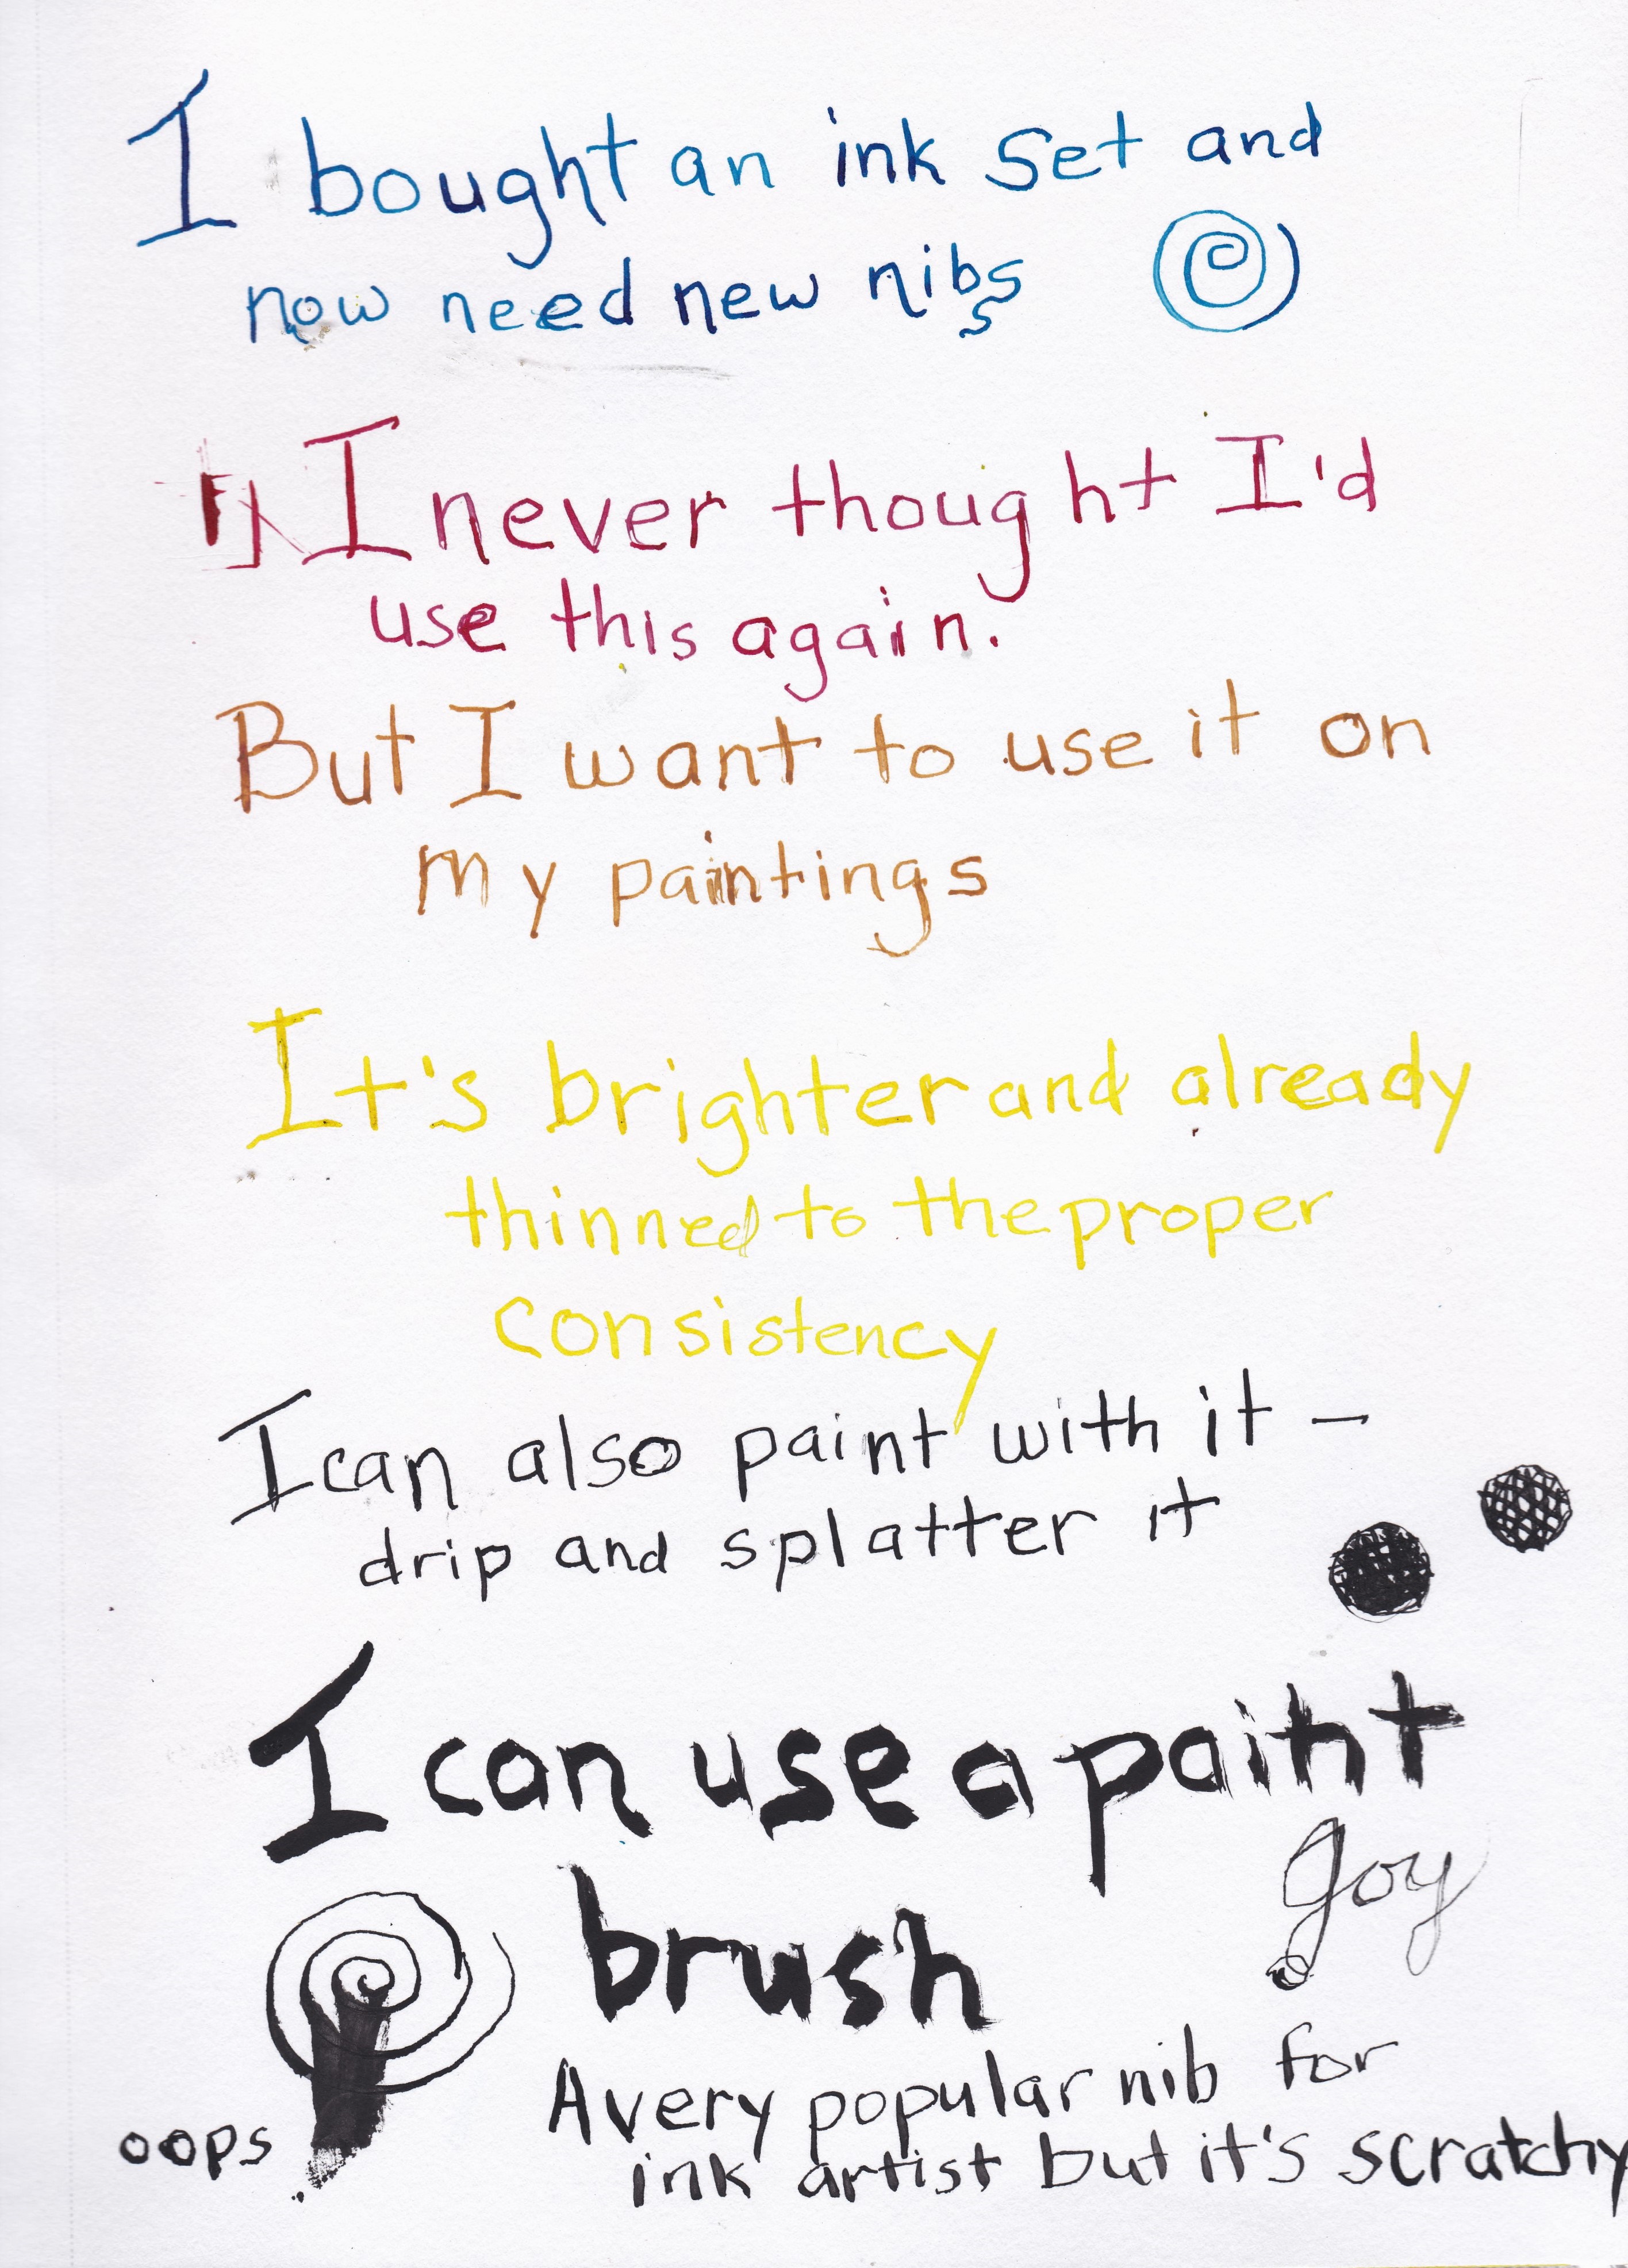 I bought an ink set and
now need new nibs
I never thought I'd
use this again.
But I want to use it on
my paintings
It's brighter and already
thinned to the proper
consistency
I can also paint with it –
drip and splatter it
I can use a paint
joy
brush
A very popular nib for
oops
ink artist but it's scratchy